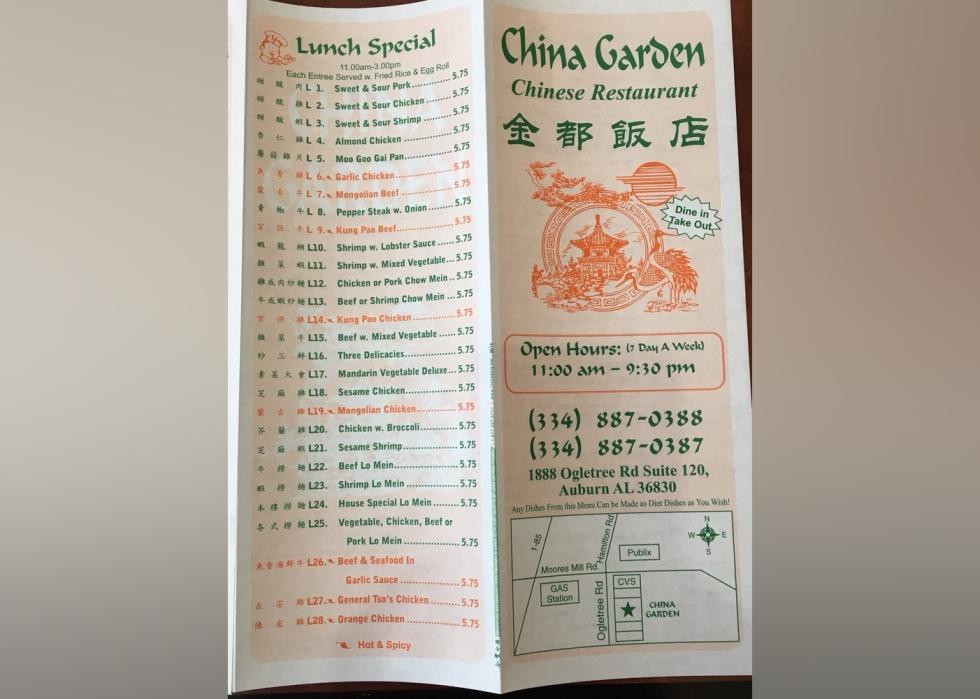 Lunch Special
11.00am-3.00pm
Each Entree Served w. Fried Rice & Egg Roll
甜酸肉 L 1. Sweet & Sour Pork 5.75
甜酸雞 L 2. Sweet & Sour Chicken 5.75
甜酸蝦 L 3. Sweet & Sour Shrimp 5.75
杏仁雞 L 4. Almond Chicken 5.75
蘑菇雞片 L 5. Moo Goo Gai Pan 5.75
魚香雞 L 6. Garlic Chicken 5.75
蒙古牛 L 7. Mongolian Beef 5.75
青椒牛 L 8. Pepper Steak w. Onion 5.75
宮保牛 L 9. Kung Pao Beef 5.75
蝦龍糊 L10. Shrimp w. Lobster Sauce 5.75
雜菜蝦 L11. Shrimp w. Mixed Vegetable 5.75
雞或肉炒麵 L12. Chicken or Pork Chow Mein 5.75
牛或蝦炒麵 L13. Beef or Shrimp Chow Mein 5.75
宮保雞 L14. Kung Pao Chicken 5.75
雜菜牛 L15. Beef w. Mixed Vegetable 5.75
炒三鮮 L16. Three Delicacies 5.75
素菜大會 L17. Mandarin Vegetable Deluxe 5.75
芝麻雞 L18. Sesame Chicken 5.75
蒙古雞 L19. Mongolian Chicken 5.75
芥蘭雞 L20. Chicken w. Broccoli 5.75
芝麻蝦 L21. Sesame Shrimp 5.75
牛撈麵 L22. Beef Lo Mein 5.75
蝦撈麵 L23. Shrimp Lo Mein 5.75
本樓撈麵 L24. House Special Lo Mein 5.75
各式撈麵 L25. Vegetable, Chicken, Beef or
Pork Lo Mein 5.75
魚香海鮮牛 L26. Beef & Seafood In
Garlic Sauce 5.75
左宗雞 L27. General Tso's Chicken 5.75
陳皮雞 L28. Orange Chicken 5.75
Hot & Spicy
China Garden
Chinese Restaurant
金都飯店
Dine in
Take Out
Open Hours: (7 Day A Week)
11:00 am – 9:30 pm
(334) 887-0388
(334) 887-0387
1888 Ogletree Rd Suite 120,
Auburn AL 36830
Any Dishes From this Menu Can be Made as Diet Dishes as You Wish!
I-85
Hamilton Rd
Publix
N
W E
S
Moores Mill Rd.
GAS
Station
Ogletree Rd
CVS
CHINA
GARDEN